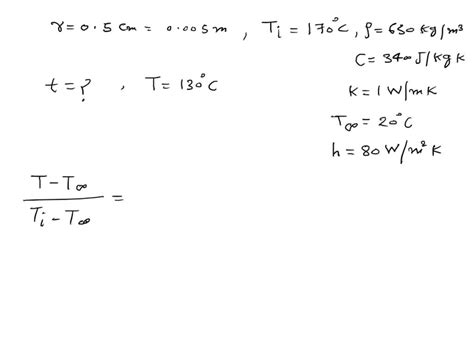 r = 0.5 cm = 0.005 m , Ti = 170°C , ρ = 630 kg/m³
C = 3400 J/kg K
t = ? , T = 130°C
K = 1 W/mK
T∞ = 20°C
h = 80 W/m² K
T - T∞
———— =
Ti - T∞